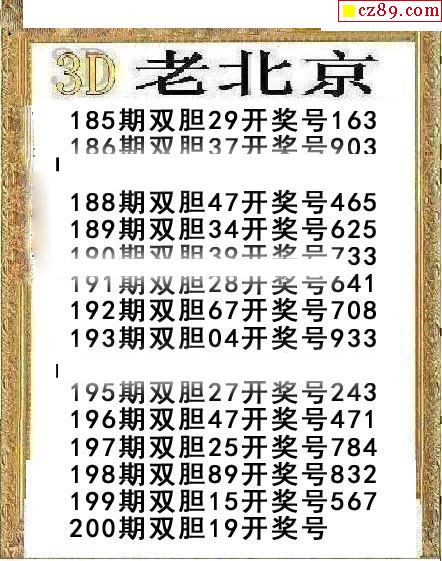 cz89.com
3D 老北京
185期双胆29开奖号163
186期双胆37开奖号903
188期双胆47开奖号465
189期双胆34开奖号625
190期双胆39开奖号733
191期双胆28开奖号641
192期双胆67开奖号708
193期双胆04开奖号933
195期双胆27开奖号243
196期双胆47开奖号471
197期双胆25开奖号784
198期双胆89开奖号832
199期双胆15开奖号567
200期双胆19开奖号